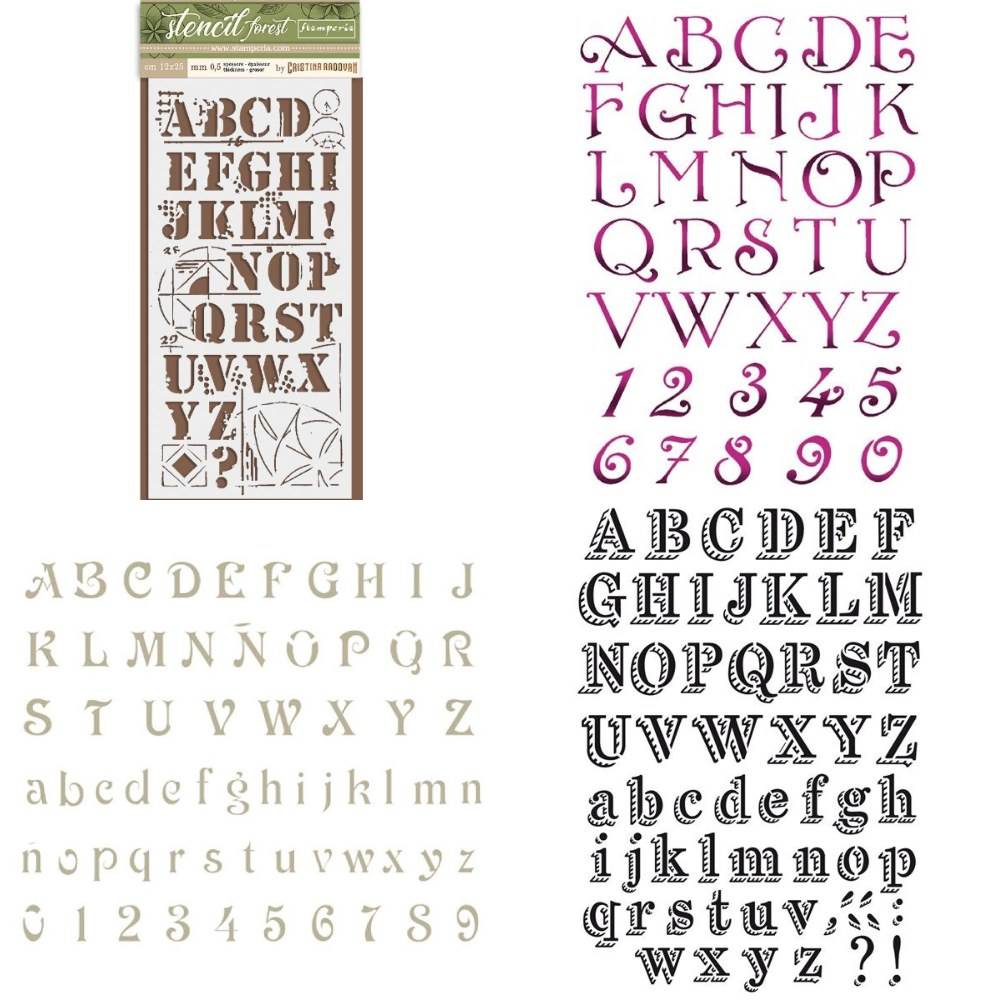 stencil forest Stamperia
www.stamperia.com
cm 12x25 mm 0,5 spessore - épaisseur thickness - grosor by CRISTINA RADOVAN
ABCD
16
EFGHI
JKLM!
25
NOP
QRST
29
UVWX
YZ
?
ABCDE
FGHIJK
LMNOP
QRSTU
VWXYZ
1 2 3 4 5
6 7 8 9 0
A B C D E F G H I J
K L M N Ñ O P Q R
S T U V W X Y Z
a b c d e f g h i j k l m n
ñ o p q r s t u v w x y z
0 1 2 3 4 5 6 7 8 9
A B C D E F
G H I J K L M
N O P Q R S T
U V W X Y Z
a b c d e f g h
i j k l m n o p
q r s t u v , ´ ´ , , :
w x y z ? !